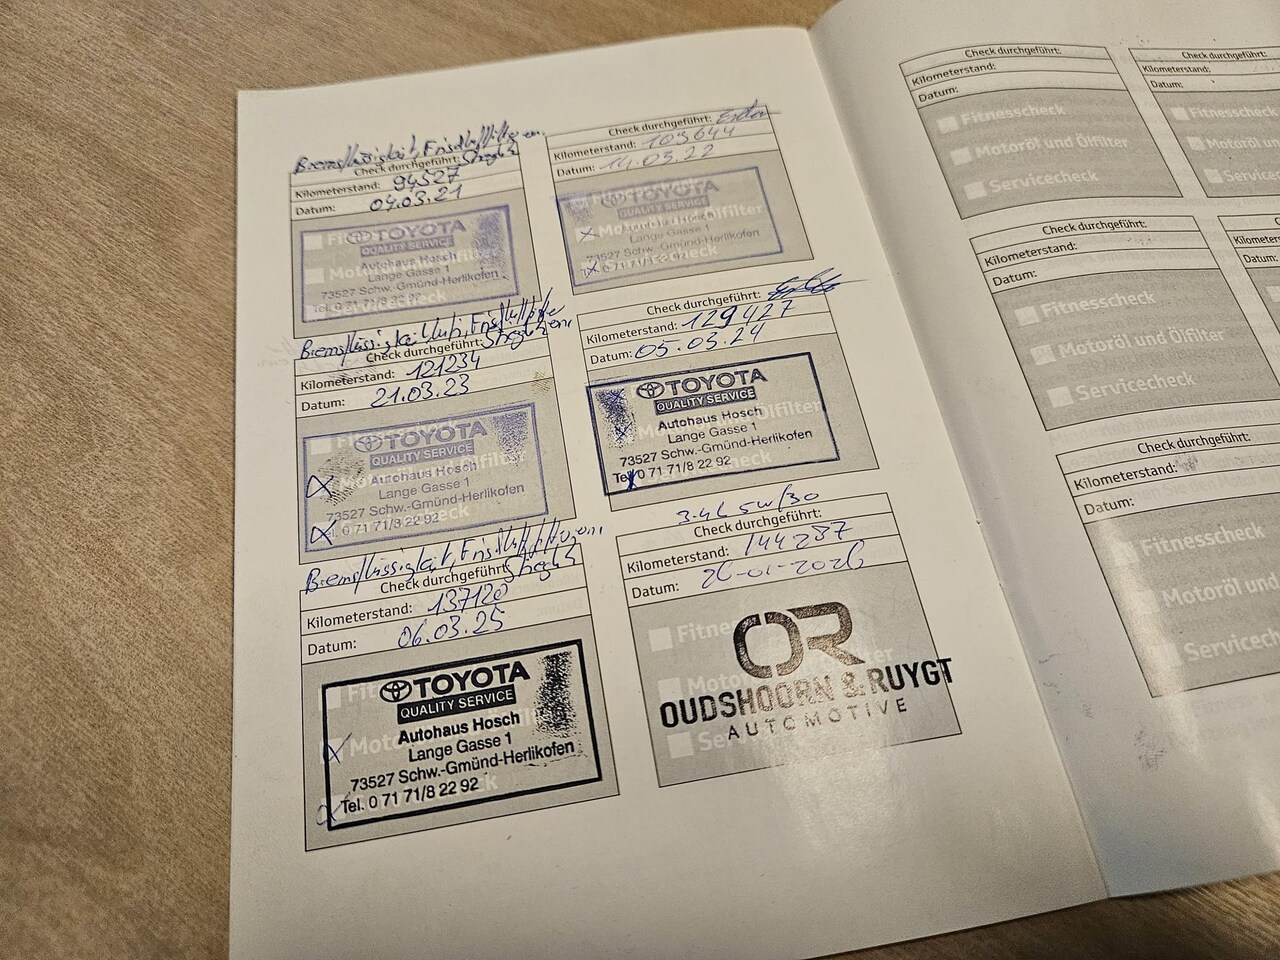 Bremsflüssigkeit, Frischluftfilter
Check durchgeführt:
Kilometerstand: 94527
Datum: 04.03.21
TOYOTA
QUALITY SERVICE
Autohaus Hosch
Lange Gasse 1
73527 Schw.-Gmünd-Herlikofen
Tel. 0 71 71/8 22 92
Check durchgeführt:
Kilometerstand: 103644
Datum: 14.03.22
TOYOTA
QUALITY SERVICE
Autohaus Hosch
Lange Gasse 1
73527 Schw.-Gmünd-Herlikofen
Tel. 0 71 71/8 22 92
Check durchgeführt:
Kilometerstand: 121234
Datum: 21.03.23
TOYOTA
QUALITY SERVICE
Autohaus Hosch
Lange Gasse 1
73527 Schw.-Gmünd-Herlikofen
Tel. 0 71 71/8 22 92
Check durchgeführt:
Kilometerstand: 129427
Datum: 05.03.24
TOYOTA
QUALITY SERVICE
Autohaus Hosch
Lange Gasse 1
73527 Schw.-Gmünd-Herlikofen
Tel. 0 71 71/8 22 92
Bremsflüssigkeit,
Check durchgeführt:
Kilometerstand: 137120
Datum: 06.03.25
TOYOTA
QUALITY SERVICE
Autohaus Hosch
Lange Gasse 1
73527 Schw.-Gmünd-Herlikofen
Tel. 0 71 71/8 22 92
3.4L 5W/30
Check durchgeführt:
Kilometerstand: 144287
Datum: 26-01-2026
OR
OUDSHOORN & RUYGT
AUTOMOTIVE
Check durchgeführt:
Kilometerstand:
Datum:
Fitnesscheck
Motoröl und Ölfilter
Servicecheck
Check durchgeführt:
Kilometerstand:
Datum:
Fitnesscheck
Motoröl und
Check durchgeführt:
Kilometerstand:
Datum:
Fitnesscheck
Motoröl und Ölfilter
Servicecheck
Check durchgeführt:
Kilometerstand:
Datum:
Fitnesscheck
Motoröl und
Servicecheck